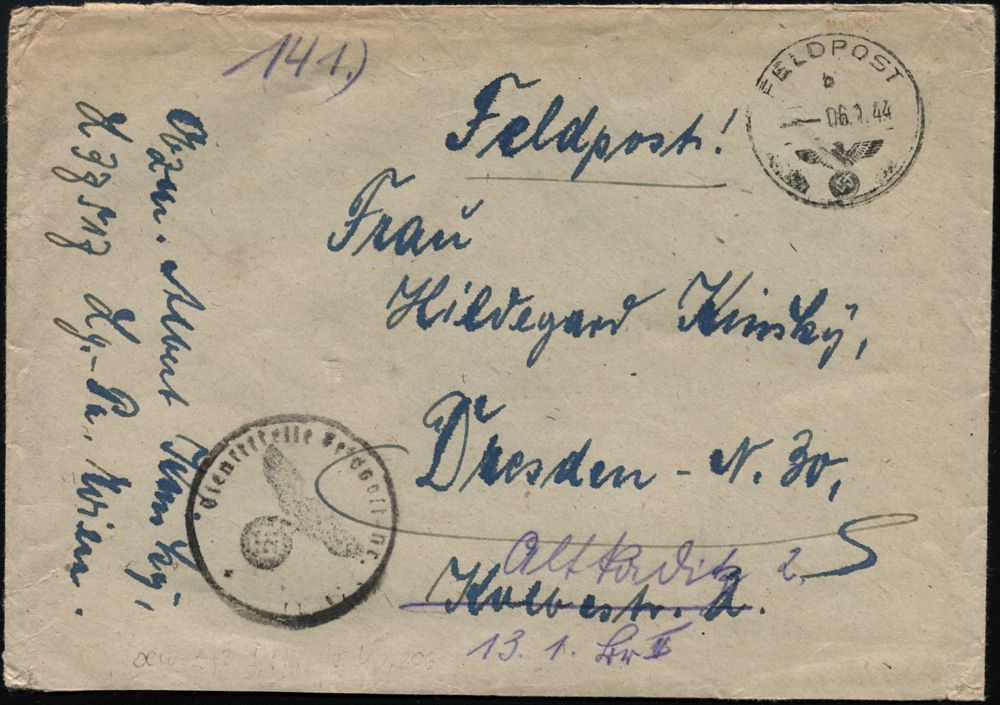 141.)
FELDPOST
b
06.1.44
Feldpost!
Frau
Hildegard Kinsky,
Dresden - N. 30,
Altkaditz 2.
Kolbestr. 2.
13. 1.
Albert Kinsky,
Lg.-Pa. Wien.
Dienststelle Feldpost Nr.